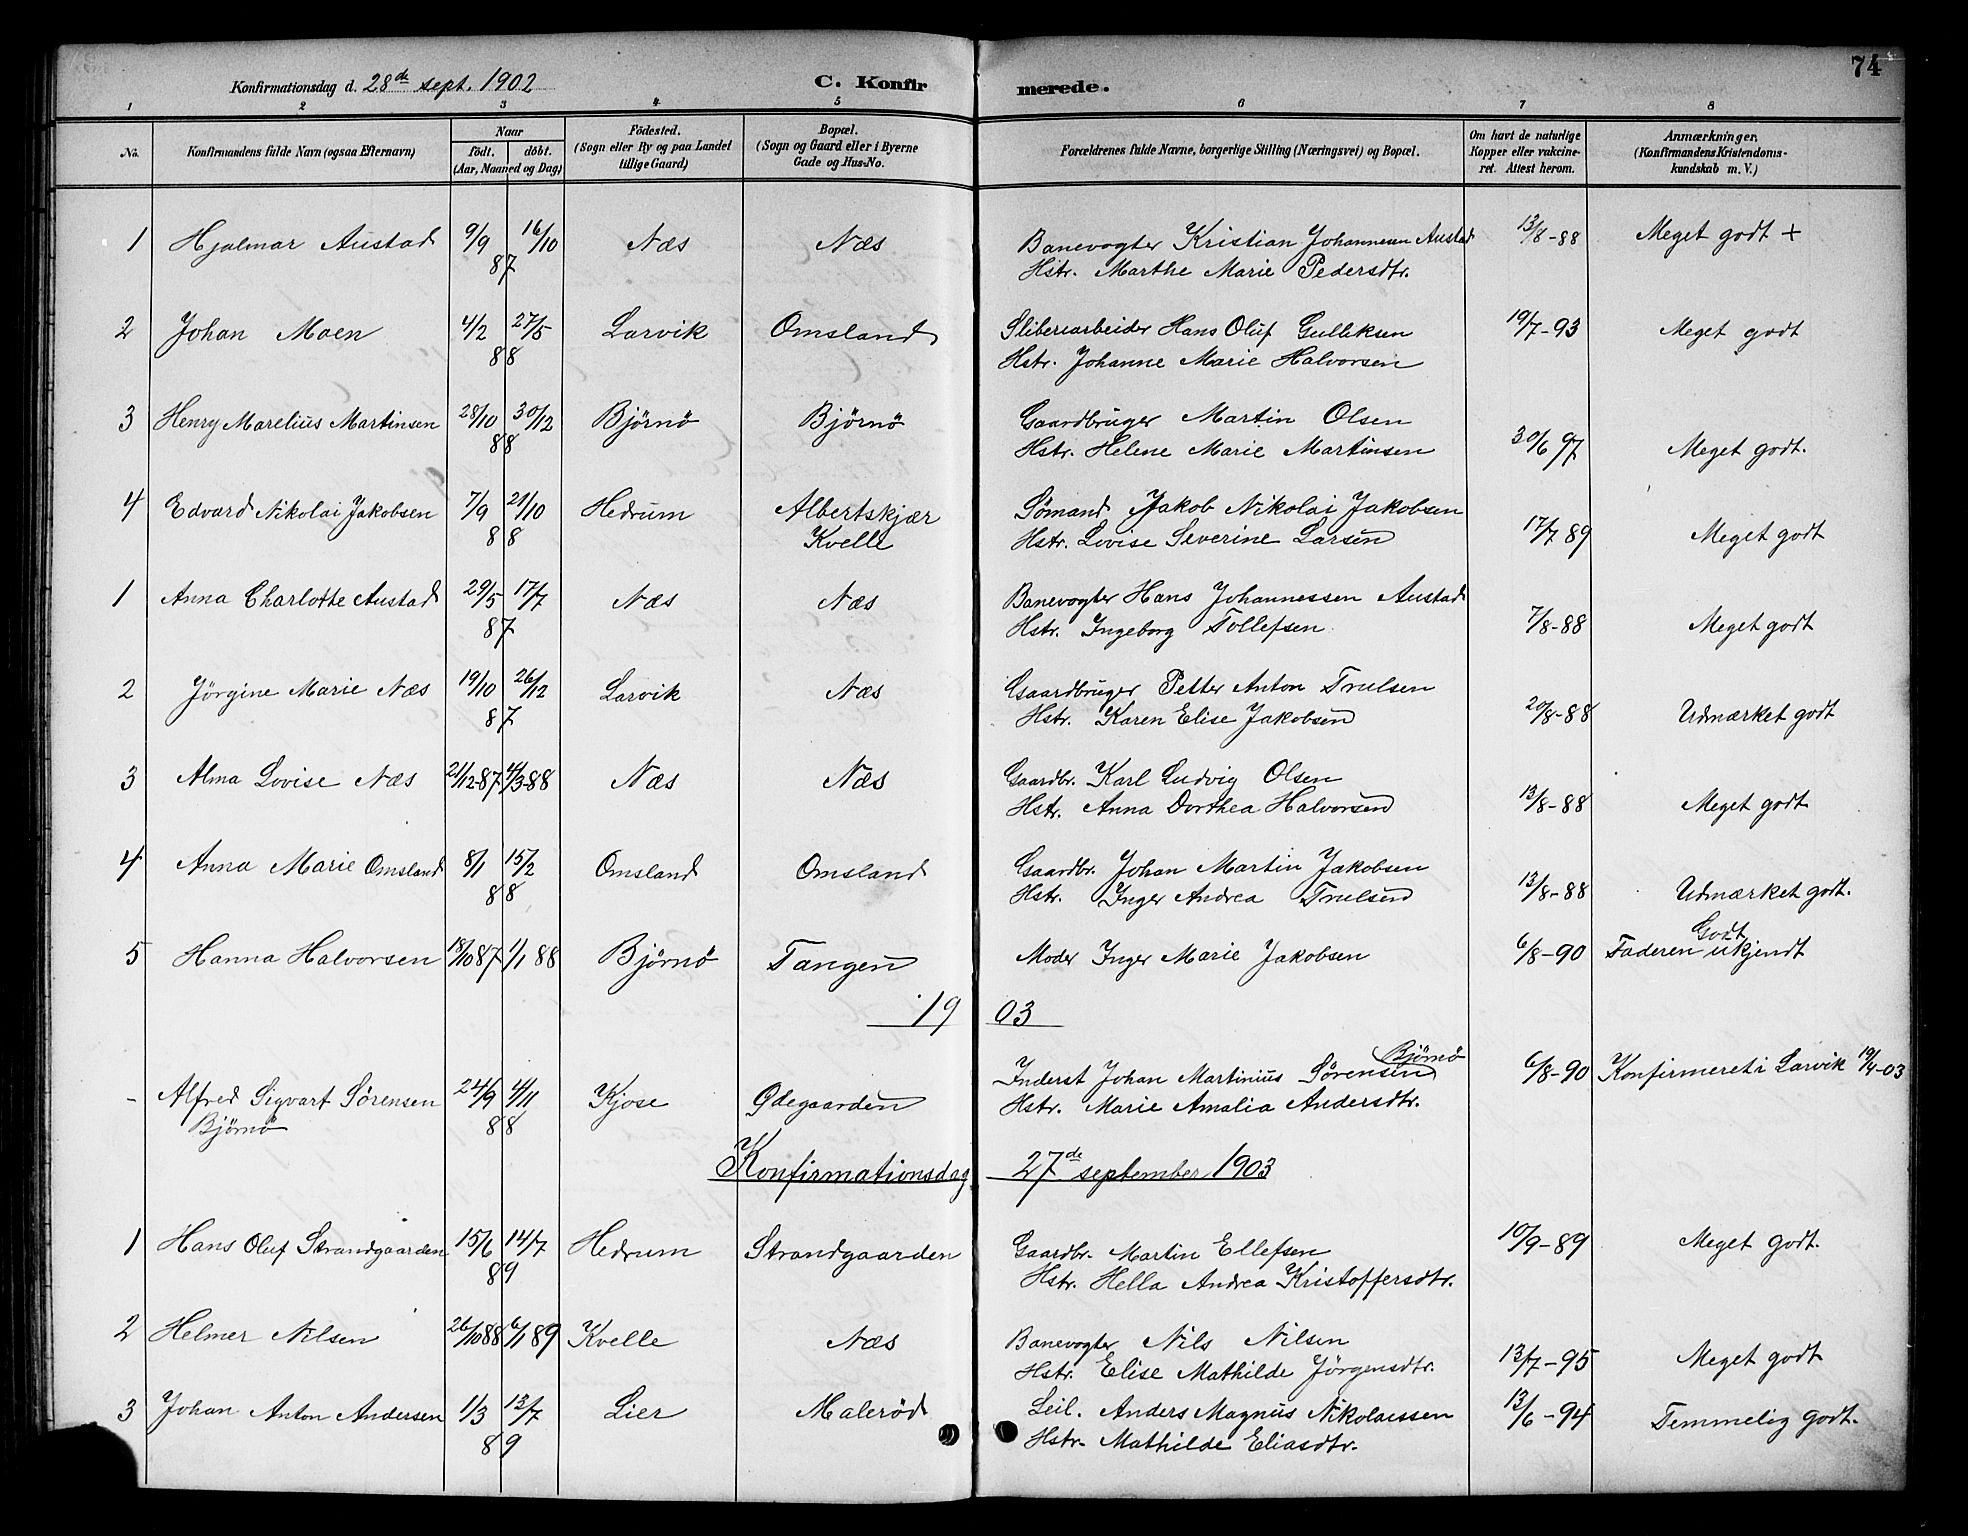 74
Konfirmationsdag d. 28de sept. 1902 C. Konfirmerede.
1 2 3 4 5 6 7 8
No. Konfirmandens fulde Navn (ogsaa Efternavn) Naar födt. döbt. (Aar, Maaned og Dag) Födested. (Sogn eller By og paa Landet tillige Gaard) Bopæl. (Sogn og Gaard eller i Byerne Gade og Hus-No. Forældrenes fulde Navne, borgerlige Stilling (Næringsvei) og Bopæl. Om havt de naturlige Kopper eller vakcineret. Attest herom. Anmærkninger, (Konfirmandens Kristendomskundskab m. V.)
1 Hjalmar Austad 9/9 16/10 Næs Næs Banevogter Kristian Johannesen Austad 13/8-88 Meget godt +
87 Hstr. Marthe Marie Pedersdtr.
2 Johan Moen 4/2 27/5 Larvik Omsland Sliberiarbeider Hans Oluf Gulliksen 19/7-93 Meget godt
88 Hstr. Johanne Marie Halvorsen
3 Henry Marelius Martinsen 28/10 30/12 Björnö Björnö Gaardbruger Martin Olsen
88 Hstr. Helene Marie Martinsen 30/6 97 Meget godt.
4 Edvard Nikolai Jakobsen 7/9 21/10 Hedrum Albertskjær Sömand Jakob Nikolai Jakobsen
88 Kvelle Hstr. Lovise Severine Larsen 17/7 89 Meget godt
1 Anna Charlotte Austad 29/5 17/7 Næs Næs Banevogter Hans Johannessen Austad
87 Hstr. Ingeborg Tollefsen 7/8-88 Meget godt
2 Jörgine Marie Næs 19/10 26/12 Larvik Næs Gaardbruger Petter Anton Trulsen
87 Hstr. Karen Elise Jakobsen 20/8-88 Udmærket godt
3 Alma Lovise Næs 21/12-87 4/3-88 Næs Næs Gaardbr. Karl Ludvig Olsen
Hstr. Anna Dorthea Halvorsen 13/8-88 Meget godt
4 Anna Marie Omsland 8/1 15/2 Omsland Omsland Gaardbr. Johan Martin Jakobsen
88 Hstr. Inger Andrea Trulsen 13/8-88 Udmærket godt.
Godt
5 Hanna Halvorsen 18/10 87 1/1 88 Björnö Tangen Moder Inger Marie Jakobsen 6/8-90 Faderen ukjendt
1903
Björnö
- Alfred Sigvart Sörensen 24/9 4/11 Kjose Ödegaarden Inderst Johan Martinius Sörensen 6/8-90 Konfirmeret i Larvik 19/4-03
Björnö 88 Hstr. Marie Amalia Andersdtr.
Konfirmationsdag 27de september 1903
1 Hans Oluf Strandgaarden 15/6 14/7 Hedrum Strandgaarden Gaardbr. Martin Ellefsen 10/9-89 Meget godt.
89 Hstr. Hella Andrea Kristoffersdtr.
2 Helmer Nilsen 26/10 88 6/1 89 Kvelle Næs Banevogter Nils Nilsen
Hstr. Elise Mathilde Jörgensdtr. 13/7-95 Meget godt
3 Johan Anton Andersen 1/3 13/7 Lier Maleröd Leil. Anders Magnus Nikolaissen 13/6-94 Temmelig godt.
89 Hstr. Mathilde Eliasdtr.